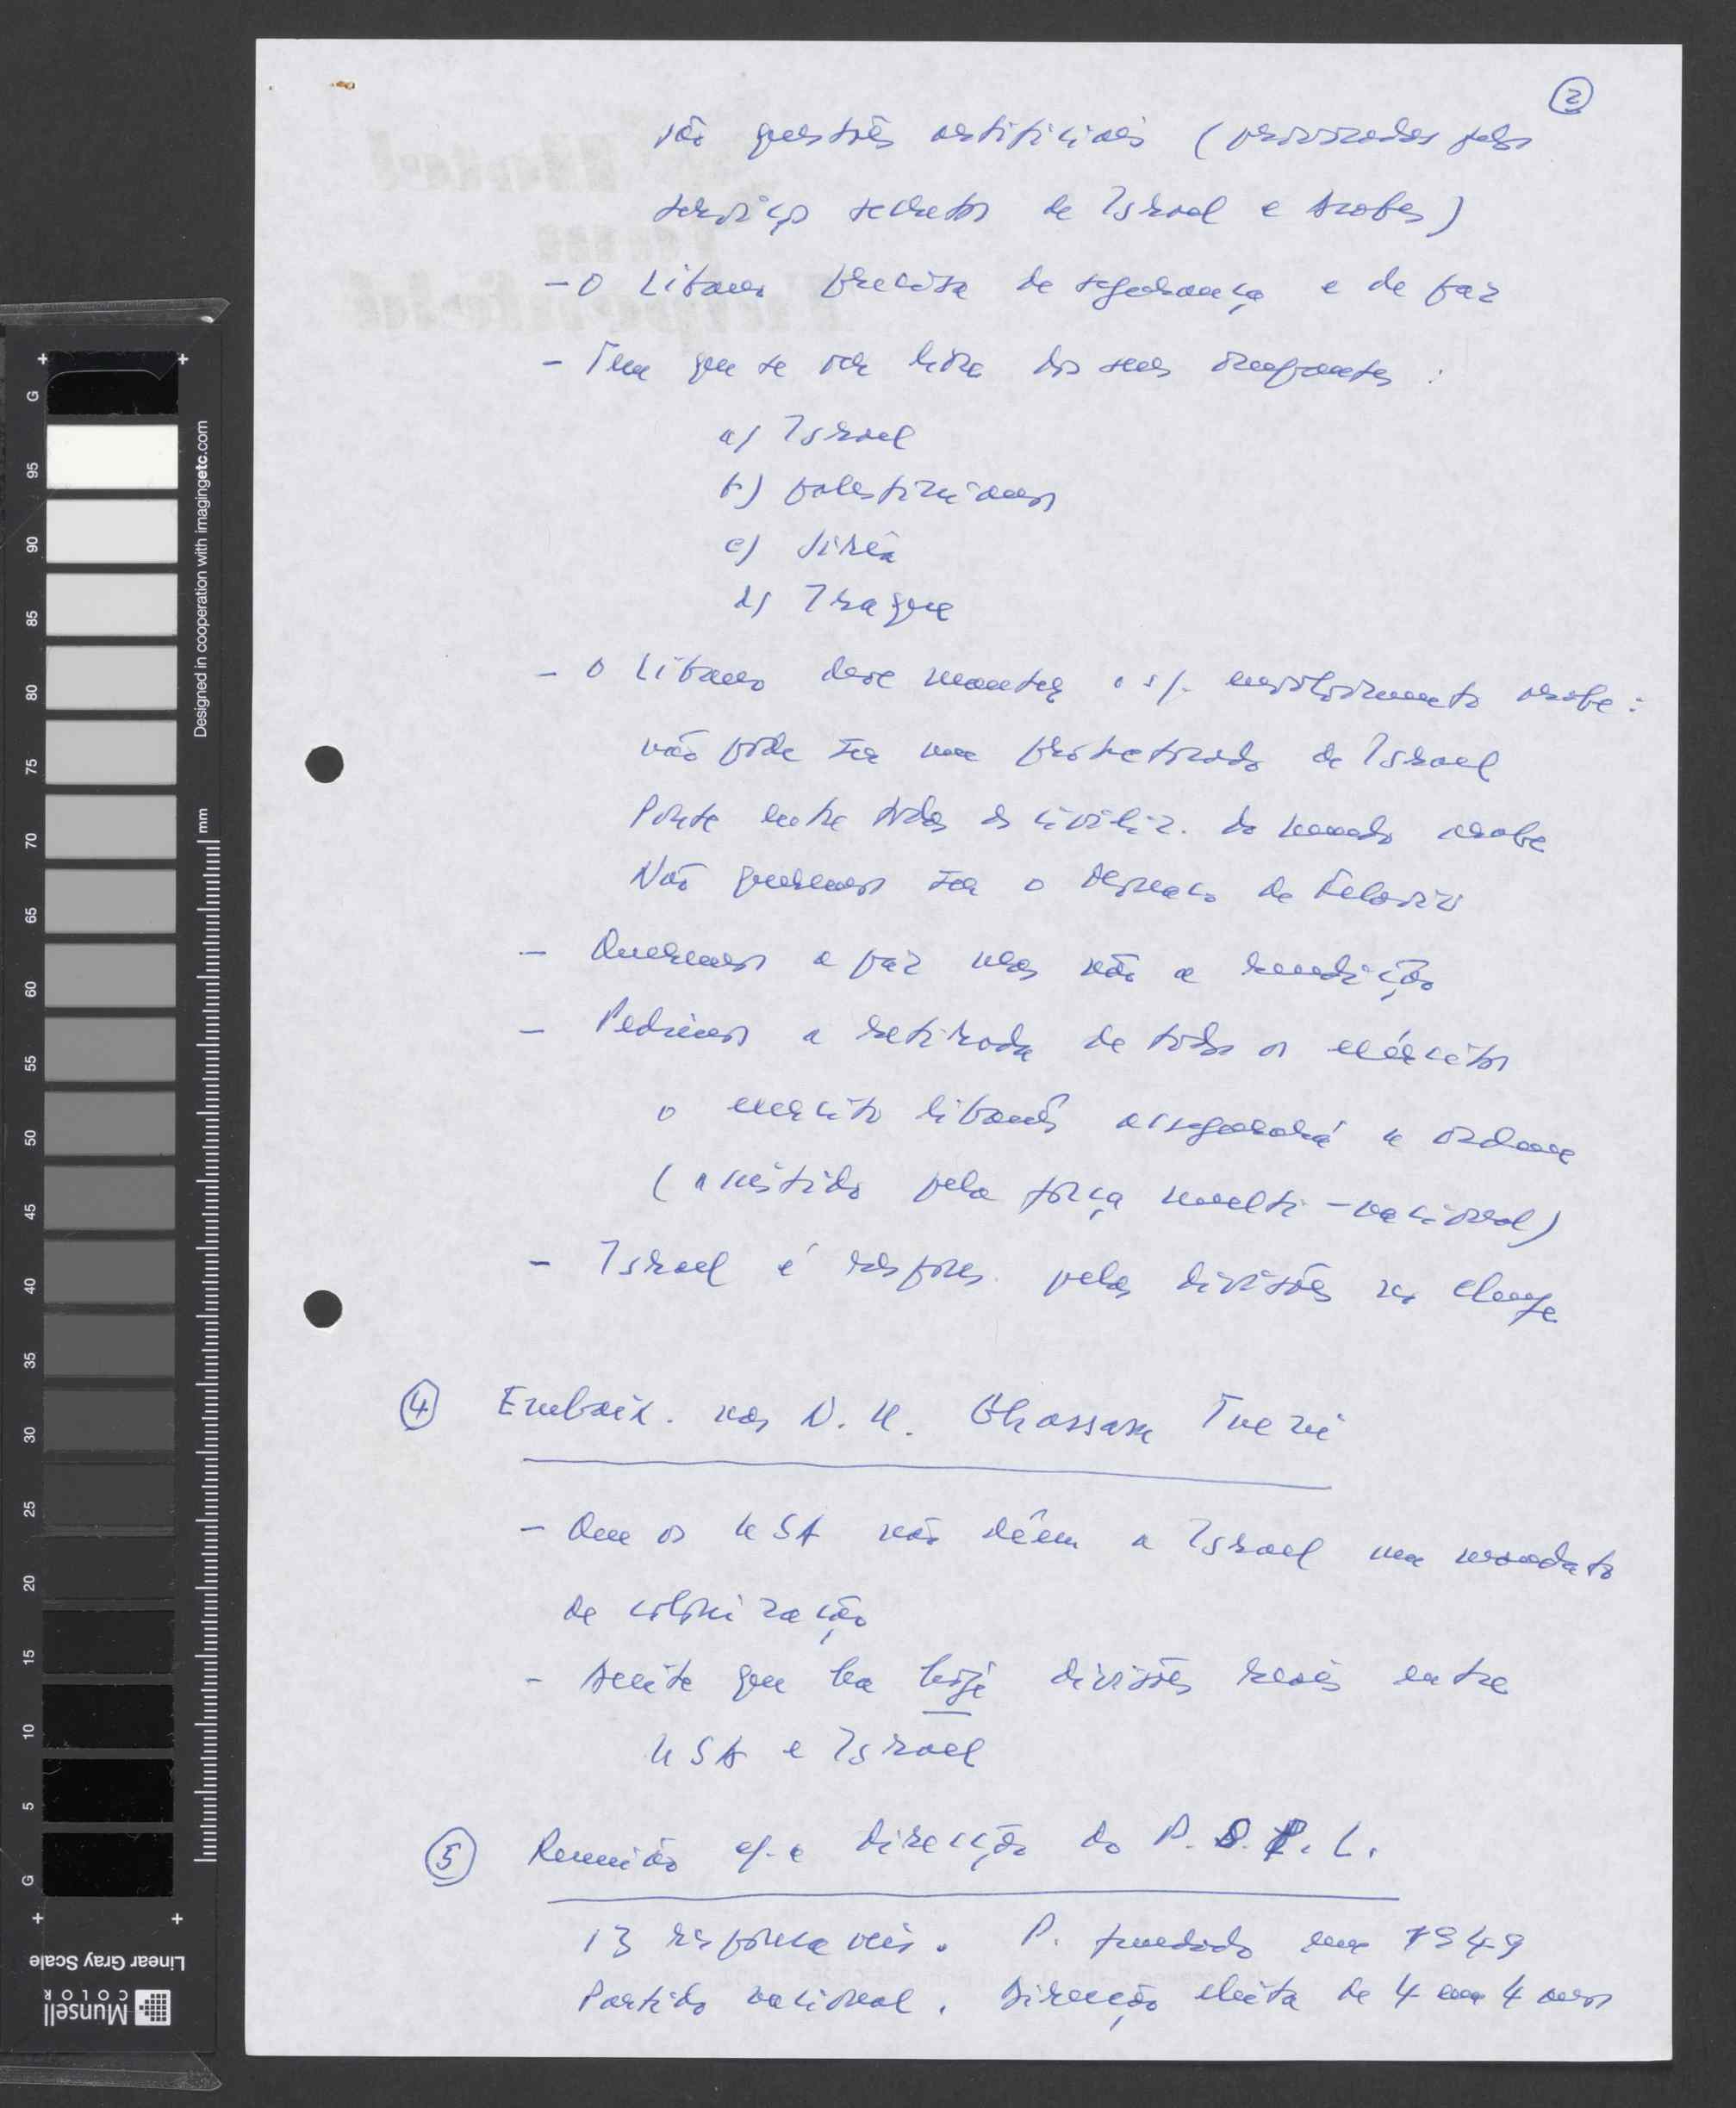 2
são questões artificiais (provocadas pelos
serviços secretos de Israel e Arabes)
- O Libano precisa de segurança e de paz
- Tem que se ver livre dos seus ocupantes :
a) Israel
b) palestinianos
c) Siria
d) Iraque
- O Libano deve manter o s/. envolvimento arabe :
não pode ser um protectorado de Israel
Ponte entre todas as civiliz. do mundo arabe
Não queremos ser o de Telaviv
- Queremos a paz mas não a rendição
- Pedimos a retirada de todos os exércitos
o exercito libanês assegurará a ordem
(assistido pela força multi-nacional)
- Israel é respons. pelas divisões no
4 Embaix. nas N.U. Ghassan Tueni
- Que os USA não dêem a Israel um mandato
de colonização
- Aceite que ha hoje divisões reais entre
USA e Israel
5 Reunião c/. a Direcção do P.S.P.L.
13 responsaveis. P. fundado em 1949
Partido nacional. Direcção eleita de 4 em 4 anos
G 95 90 85 80 75 70 65 60 55 50 45 40 35 30 25 20 15 10 5 G
Designed in cooperation with imagingetc.com
mm
Linear Gray Scale
Munsell
COLOR